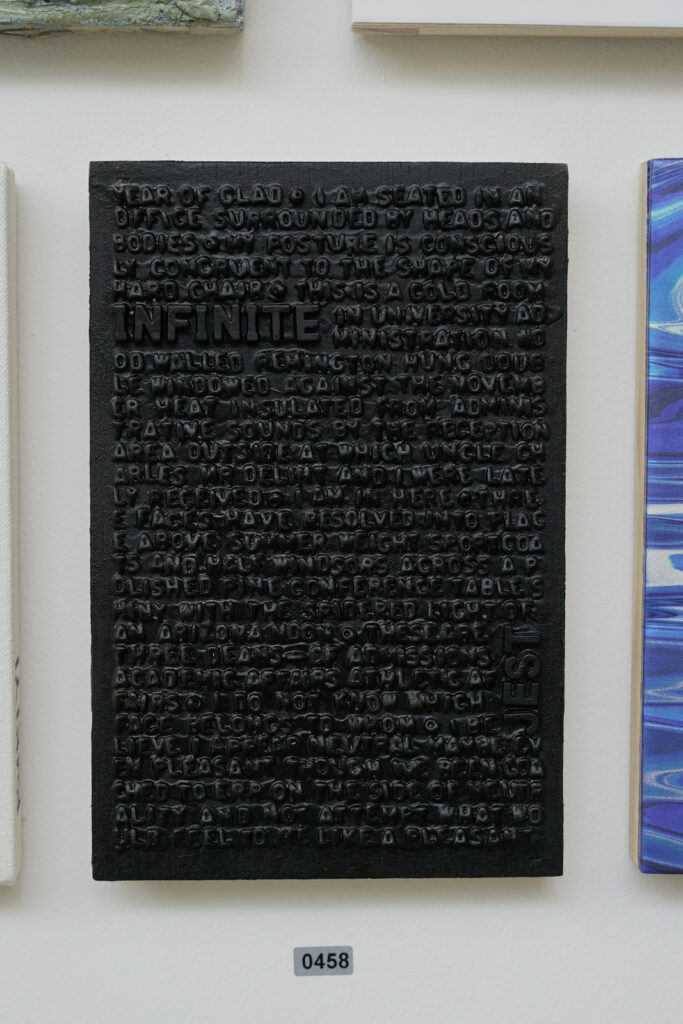 YEAR OF GLAD • I AM SEATED IN AN
OFFICE SURROUNDED BY HEADS AND
BODIES • MY POSTURE IS CONSCIOUS
LY CONGRUENT TO THE SHAPE OF MY
HARD CHAIR • THIS IS A COLD ROOM
INFINITE
IN UNIVERSITY AD
MINISTRATION WO
OD WALLED REMINGTON HUNG DOUB
LE WINDOWED AGAINST THE NOVEMB
ER HEAT INSULATED FROM ADMINIS
TRATIVE SOUNDS BY THE RECEPTION
AREA OUTSIDE AT WHICH UNCLE CH
ARLES MR DELINT AND I WERE LATE
LY RECEIVED • I AM IN HERE • THRE
E FACES HAVE RESOLVED INTO PLAC
E ABOVE SUMMER WEIGHT SPORTCOA
TS AND HALF WINDSORS ACROSS A P
OLISHED PINE CONFERENCE TABLE S
HINY WITH THE SPIDERED LIGHT OF
AN ARIZONA NOON • THESE ARE
THREE DEANS – OF ADMISSIONS
ACADEMIC AFFAIRS ATHLETIC A
FFAIRS • I DO NOT KNOW WHICH
FACE BELONGS TO WHOM • I BE
JEST
LIEVE I APPEAR NEUTRAL MAYBE EV
EN PLEASANT THOUGH I'VE BEEN COA
CHED TO ERR ON THE SIDE OF NEUTR
ALITY AND NOT ATTEMPT WHAT WO
ULD FEEL TO ME LIKE A PLEASANT
0458